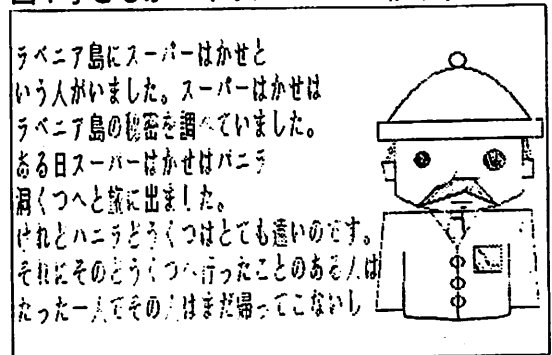 ラベニア島にスーパーはかせと
いう人がいました。スーパーはかせは
ラベニア島の秘密を調べていました。
ある日スーパーはかせはバニラ
洞くつへと旅に出ました。
けれどバニラどうくつはとても遠いのです。
それにそのどうくつへ行ったことのある人は
たった一人でその人はまだ帰ってこないし